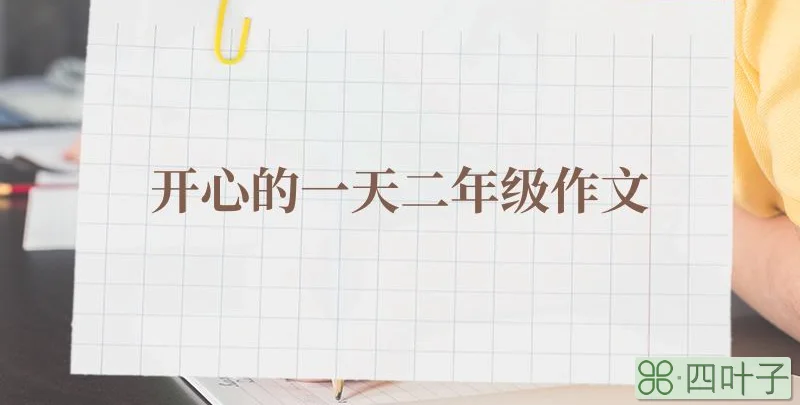 开心的一天二年级作文
四叶子